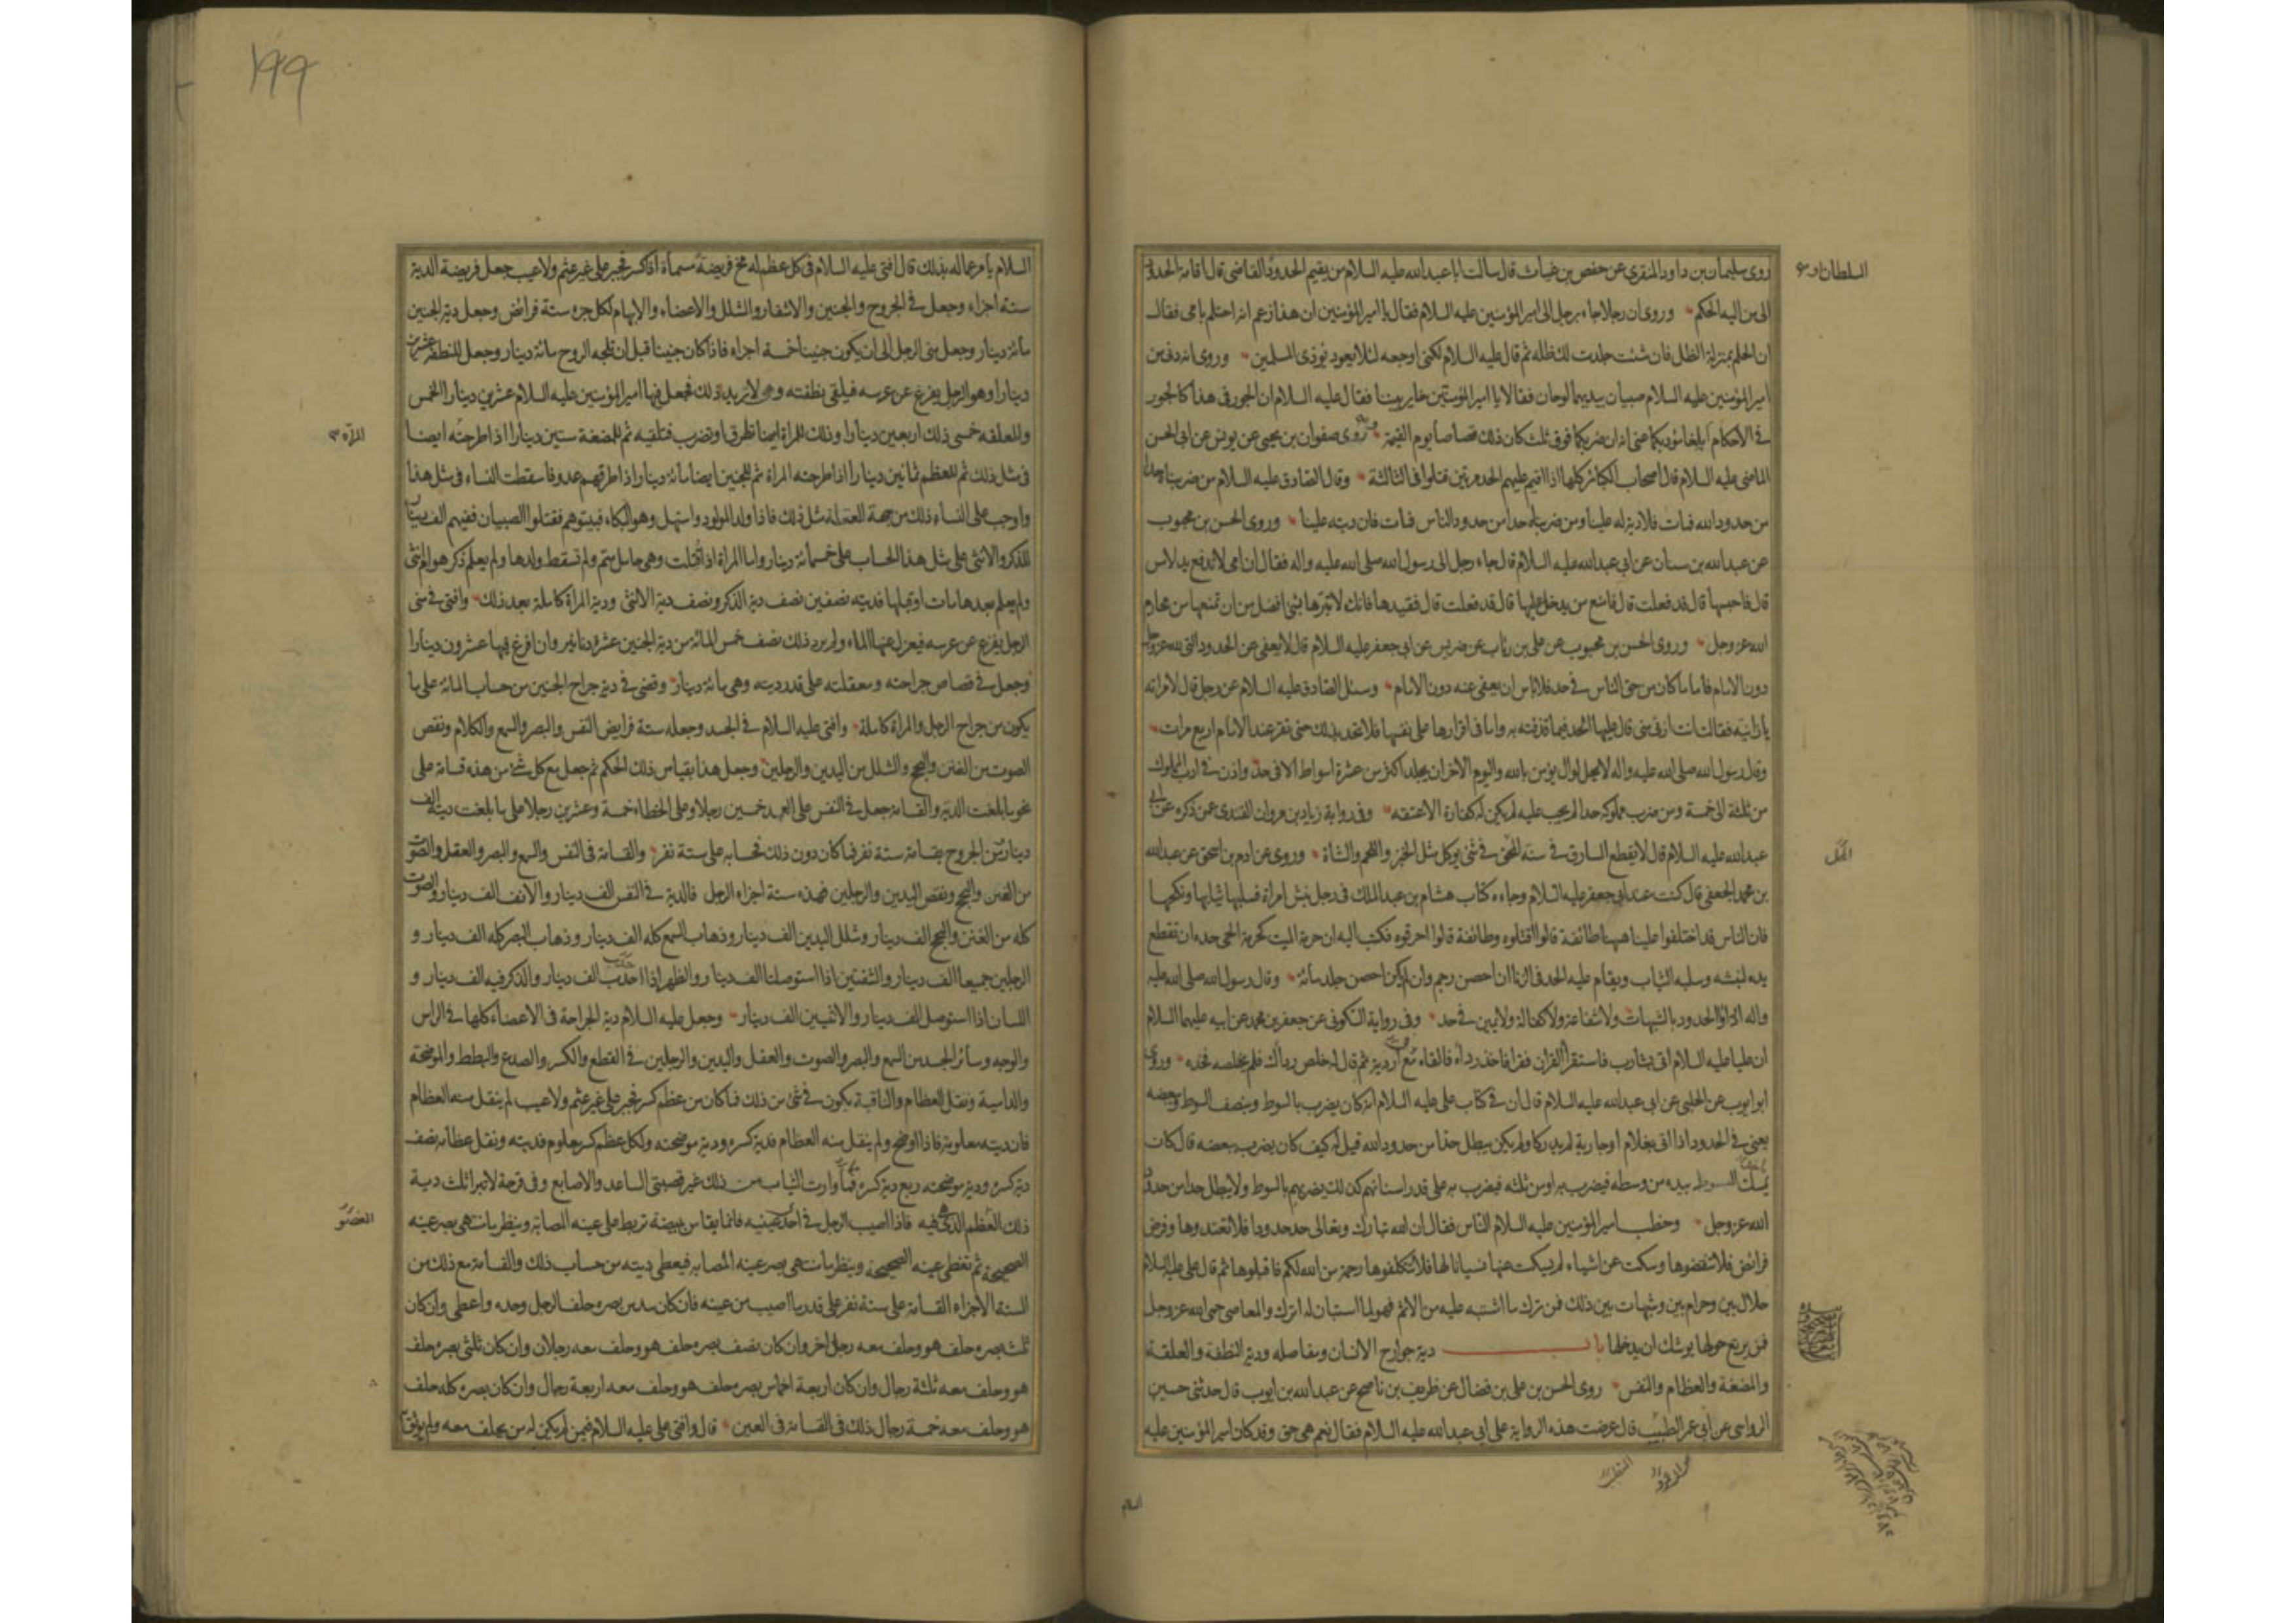 روى سليمان بن داود المنقري عن حفص بن غياث قال سالت ابا عبد الله عليه السلام من يقيم الحدود القاضي قال اقامة الحدود
السلطان او
الى من اليه الحكم وروى ان رجلا جاء برجل الى امير المؤمنين عليه السلام فقال يا امير المؤمنين ان هذا زعم انه احتلم بامى فقال
ان الحلم بمنزلة الظل فان شئت جلدت لك ظله ثم قال عليه السلام لكنى اوجعه لئلا يعود يوذى المسلمين وروى انه دفى من
امير المؤمنين عليه السلام صبيان بيديهما لوحان فقالا يا امير المؤمنين خاير بيننا فقال عليه السلام ان الجور فى هذا كالجور
فى الاحكام ابلغا مؤدبكما عنى انه ان ضربكما فوق ثلث كان ذلك قصاصا يوم القيمة روى صفوان بن يحيى عن يونس عن ابى الحسن
الماضى عليه السلام قال اصحاب الكبائر كلها اذا اقيم عليهم الحد مرتين قتلوا فى الثالثة وقال الصادق عليه السلام من ضربناه حدا
من حدود الله فمات فلا دية له علينا ومن ضربناه حدا من حدود الناس فمات فان ديته علينا وروى الحسن بن محبوب
عن عبد الله بن سنان عن ابى عبد الله عليه السلام قال جاء رجل الى رسول الله صلى الله عليه واله فقال ان امى لا تدفع يد لامس
قال فاحبسها قال قد فعلت قال فامنع من يدخل عليها قال قد فعلت قال فقيدها فانك لا تبرها بشئ افضل من ان تمنعها من محارم
الله عز وجل وروى الحسن بن محبوب عن على بن رئاب عن ضريس عن ابى جعفر عليه السلام قال لا يعفى عن الحدود التى لله عز وجل
دون الامام فاما ما كان من حق الناس فى حد فلا باس ان يعفى عنه دون الامام وسئل الصادق عليه السلام عن رجل قال لامراته
يا زانية فقالت انت ازنى منى قال عليها الحد فيما قذفته به واما فى اقرارها على نفسها فلا تحد بذلك حتى تقر عند الامام اربع مرات
وقال رسول الله صلى الله عليه واله لا يحل لوال يؤمن بالله واليوم الاخر ان يجلد اكثر من عشرة اسواط الا فى حد واذن فى ادب المملوك
من ثلثة الى خمسة ومن ضرب مملوكه حدا لم يجب عليه لم يكن له كفارة الا عتقه وفى رواية زياد بن مروان القندى عمن ذكره عن ابى
عبد الله عليه السلام قال لا يقطع السارق فى سنة المحق فى شئ يوكل مثل الخبز واللحم والشاة وروى عن ادم بن اسحق عن عبد الله
المحل
بن محمد الجعفى قال كنت عند ابى جعفر عليه السلام وجاءه كتاب هشام بن عبد الملك فى رجل نبش امراة فسلبها ثيابها ونكحها
فان الناس قد اختلفوا علينا ههنا طائفة قالوا اقتلوه وطائفة قالوا احرقوه فكتب اليه ان حرمة الميت كحرمة الحى حده ان تقطع
يده لنبشه وسلبه الثياب ويقام عليه الحد فى الزنا ان احصن رجم وان لم يكن احصن جلد مائة وقال رسول الله صلى الله عليه
واله ادرؤا الحدود بالشبهات ولا شفاعة ولا كفالة ولا يمين فى حد وفى رواية السكونى عن جعفر بن محمد عن ابيه عليهما السلام
ان عليا عليه السلام اتى بشارب فاستقرأ القران فقرا فاخذ رداه فالقاه مع اردية ثم قال له خلص رداك فلم يخلصه فحده وروى
ابو ايوب عن الحلبى عن ابى عبد الله عليه السلام قال ان فى كتاب على عليه السلام انه كان يضرب بالسوط وبنصف السوط وببعضه
يعنى فى الحدود اذا اتى بغلام او جارية لم يدركا ولم يكن يبطل حدا من حدود الله قيل له كيف كان يضرب ببعضه قال كان
يمسك السوط بيده من وسطه فيضرب به او من ثلثه فيضرب به على قدر اسنانهم كذلك يضربهم بالسوط ولا يبطل حدا من حدود
الله عز وجل وخطب امير المؤمنين عليه السلام الناس فقال ان الله تبارك وتعالى حد حدودا فلا تعتدوها وفرض
فرائض فلا تنقضوها وسكت عن اشياء لم يسكت عنها نسيانا لها فلا تتكلفوها رحمة من الله لكم فاقبلوها ثم قال على عليه السلام
حلال بين وحرام بين وشبهات بين ذلك فمن ترك ما اشتبه عليه من الاثم فهو لما استبان له اترك والمعاصى حمى الله عز وجل
فمن يرتع حولها يوشك ان يدخلها باب دية جوارح الانسان ومفاصله ودية النطفة والعلقة
والمضغة والعظام والنفس روى الحسن بن على بن فضال عن ظريف بن ناصح عن عبد الله بن ايوب قال حدثنى حسين
الرواسى عن ابى عمر الطبيب قال عرضت هذه الرواية على ابى عبد الله عليه السلام فقال نعم هى حق وقد كان امير المؤمنين عليه
السلام
١٩٩
السلام يامر عماله بذلك قال افتى عليه السلام فى كل عظم له مخ فريضة مسماة اذا كسر فجبر على غير عثم ولا عيب جعل فريضة الدية
ستة اجزاء وجعل فى الجروح والجنين والاشفار والشلل والاعضاء والابهام لكل جزء ستة فرائض وجعل دية الجنين
مائة دينار وجعل منى الرجل الى ان يكون جنينا خمسة اجزاء فاذا كان جنينا قبل ان تلجه الروح مائة دينار وجعل للنطفة عشرين
دينارا وهو الرجل يفزع عن عرسه فيلقى نطفته وهى لا تريد ذلك فجعل فيها امير المؤمنين عليه السلام عشرين دينارا الخمس
وللعلقة خمسى ذلك اربعين دينارا وذلك للمراة ايضا تطرق او تضرب فتلقيه ثم للمضغة ستين دينارا اذا طرحته ايضا
المراة
فى مثل ذلك ثم للعظم ثمانين دينارا اذا طرحته المراة ثم للجنين ايضا مائة دينار اذا طرقهم عدو فاسقطت النساء فى مثل هذا
واوجب على النساء ذلك من جهة المعقلة مثل ذلك فاذا ولد المولود واستهل وهو البكاء فبيتوهم فقتلوا الصبيان ففيهم الف دينار
للذكر والانثى على مثل هذا الحساب على خمسمائة دينار واما المراة اذا قتلت وهى حامل متم ولم تسقط ولدها ولم يعلم ذكر هو ام انثى
ولم يعلم بعدها مات او قبلها فديته نصفين نصف دية الذكر ونصف دية الانثى ودية المراة كاملة بعد ذلك وافتى فى منى
الرجل يفزع عن عرسه فيعزل عنها الماء ولم يرد ذلك نصف خمس المائة من دية الجنين عشرة دنانير وان افرغ فيها عشرون دينارا
وجعل فى قصاص جراحته ومعقلته على قدر ديته وهى مائة دينار وقضى فى دية جراح الجنين من حساب المائة على ما
يكون من جراح الرجل والمراة كاملة وافتى عليه السلام فى الجسد وجعله ستة فرايض النفس والبصر والسمع والكلام ونقص
الصوت من الغنن والبحح والشلل من اليدين والرجلين وجعل هذا بقياس ذلك الحكم ثم جعل مع كل شئ من هذه قسامة على
نحو ما بلغت الدية والقسامة جعل فى النفس على العمد خمسين رجلا وعلى الخطاء خمسة وعشرين رجلا على ما بلغت ديته الف
دينار من الجروح بقسامة ستة نفر فما كان دون ذلك فحسابه على ستة نفر والقسامة فى النفس والسمع والبصر والعقل والصوت
من الغنن والبحح ونقص اليدين والرجلين فهذه ستة اجزاء الرجل فالدية فى النفس الف دينار والانف الف دينار والصوت
كله من الغنن والبحح الف دينار وشلل اليدين الف دينار وذهاب السمع كله الف دينار وذهاب البصر كله الف دينار و
الرجلين جميعا الف دينار والشفتين اذا استوصلتا الف دينار والظهر اذا احدب الف دينار والذكر فيه الف دينار و
اللسان اذا استوصل الف دينار والانثيين الف دينار وجعل عليه السلام دية الجراحة فى الاعضاء كلها فى الراس
والوجه وسائر الجسد من السمع والبصر والصوت والعقل واليدين والرجلين فى القطع والكسر والصدع والبطط والموضحة
والدامية ونقل العظام والناقبة يكون فى شئ من ذلك فما كان من عظم كسر فجبر على غير عثم ولا عيب لم ينقل منه العظام
فان ديته معلومة فاذا اوضح ولم ينقل منه العظام فدية كسره ودية موضحته ولكل عظم كسر معلوم فديته ونقل عظامه نصف
دية كسره ودية موضحته ربع دية كسره فما وارت الثياب من ذلك غير قصبتى الساعد والاصابع وفى قرحة لا تبرا ثلث دية
ذلك العظم الذى هى فيه فاذا اصيب الرجل فى احدى عينيه فانما يقاس ببيضة تربط على عينه المصابة وينظر ما منتهى بصر عينه
العضو
الصحيحة ثم تغطى عينه الصحيحة وينظر ما منتهى بصر عينه المصابة فيعطى ديته من حساب ذلك والقسامة مع ذلك من
الستة الاجزاء القسامة على ستة نفر على قدر ما اصيب من عينه فان كان سدس بصره حلف الرجل وحده واعطى وان كان
ثلث بصره حلف هو وحلف معه رجل اخر وان كان نصف بصره حلف هو وحلف معه رجلان وان كان ثلثى بصره حلف
هو وحلف معه ثلثة رجال وان كان اربعة اخماس بصره حلف هو وحلف معه اربعة رجال وان كان بصره كله حلف
هو وحلف معه خمسة رجال ذلك فى القسامة فى العين قال وافتى على عليه السلام فيمن لم يكن له من يحلف معه ولم يوثق